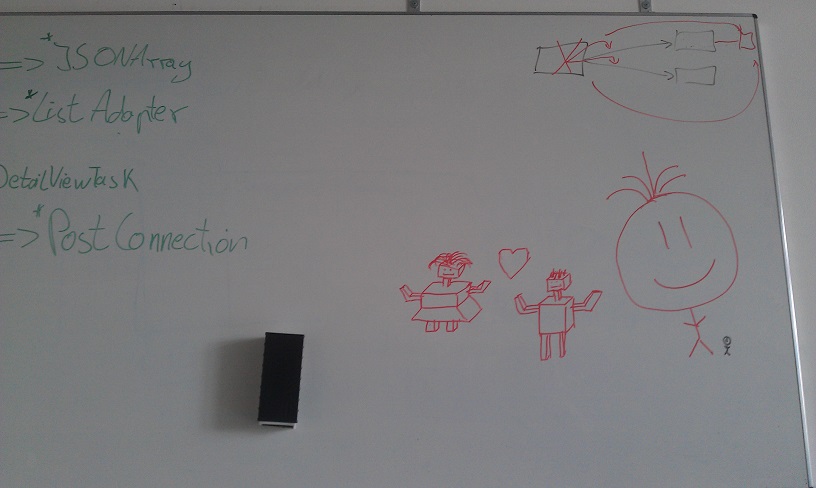 => *JSONArray
=> *List Adapter
DetailViewTask
=> *Post Connection